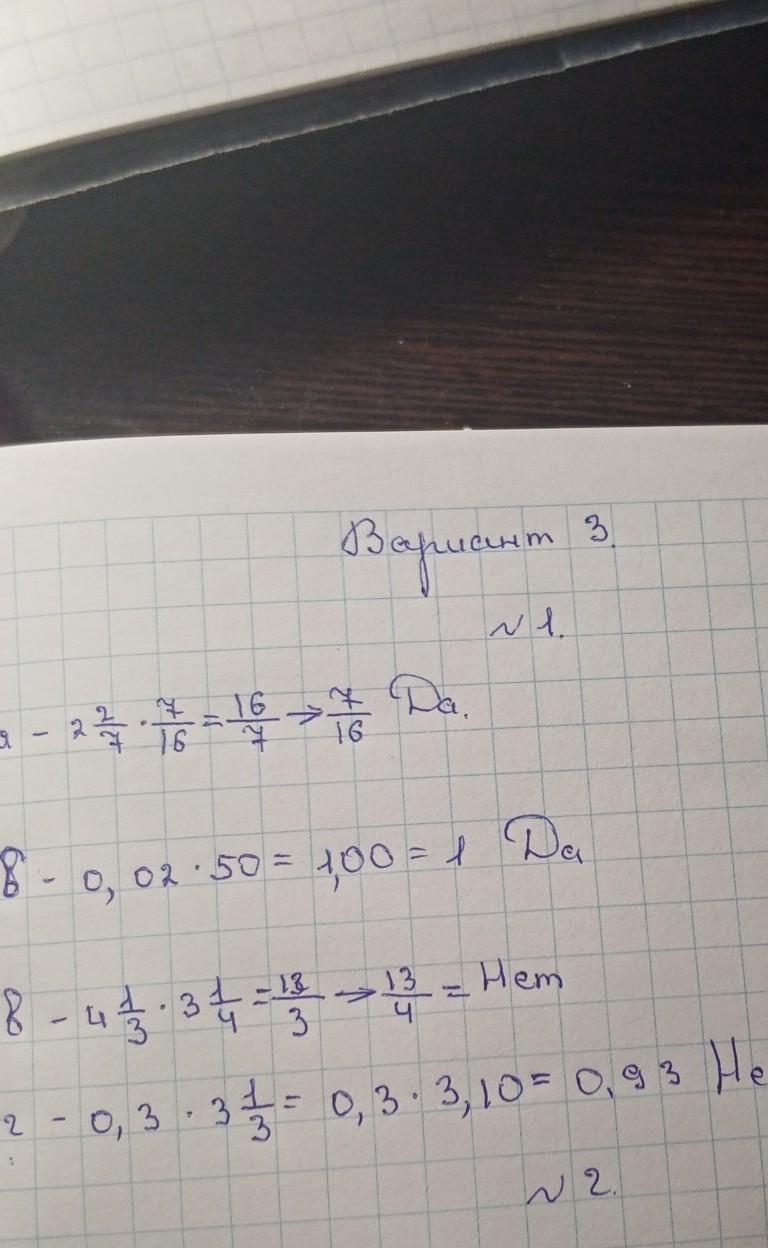 Вариант 3.
№ 1.
а - 2 2/7 · 7/16 = 16/7 → 7/16 Да.
б - 0,02 · 50 = 1,00 = 1 Да
в - 4 1/3 · 3 1/4 = 13/3 → 13/4 = Нет
г - 0,3 · 3 1/3 = 0,3 · 3,10 = 0,93 Не
№ 2.